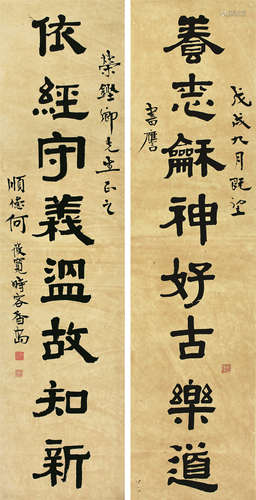 養志龢神好古樂道
戊戌九月既望
書應
依經守義溫故知新
榮鏗卿先生正之
順德何筱寬時客香島